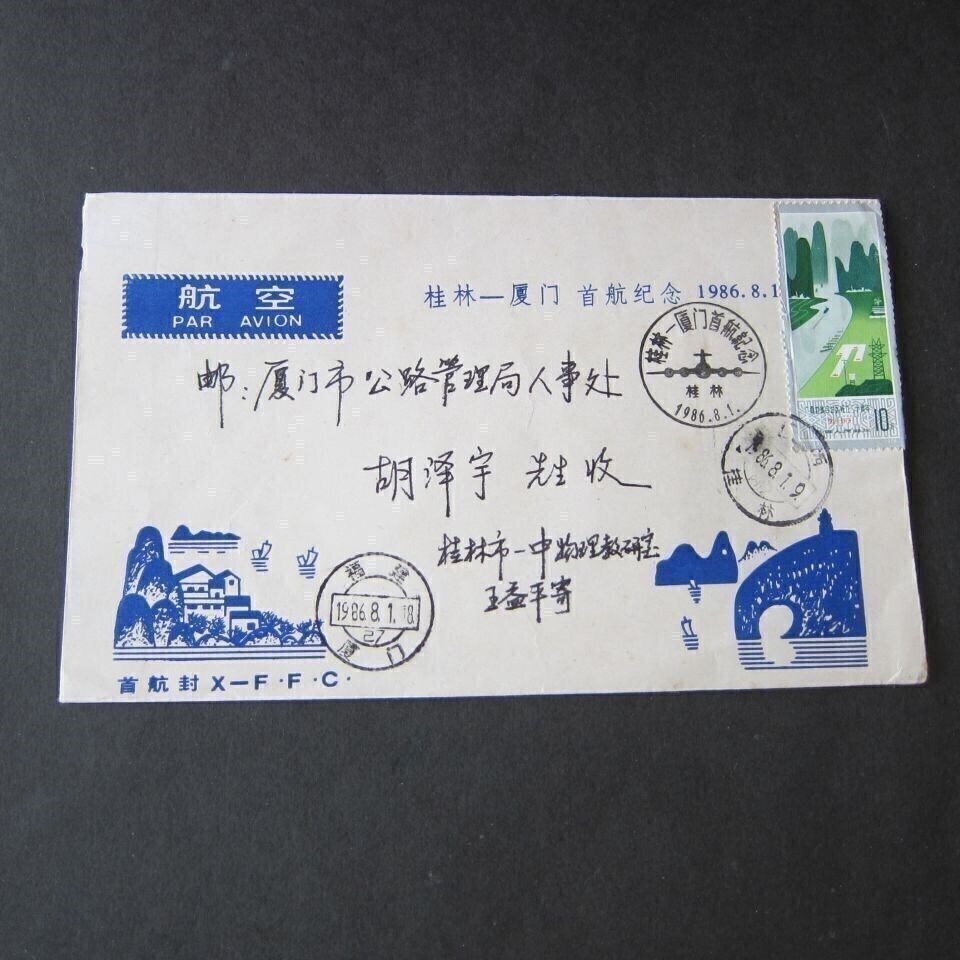 航空
PAR AVION
桂林—厦门 首航纪念 1986.8.1
桂林—厦门首航纪念
桂林
1986.8.1.
10
邮:厦门市公路管理局人事处
胡泽宇 先生收
桂林市一中物理教研室
王益平寄
1986.8.1.9
桂林
福建
1986.8.1.18
27
厦门
首航封 X—F·F·C·